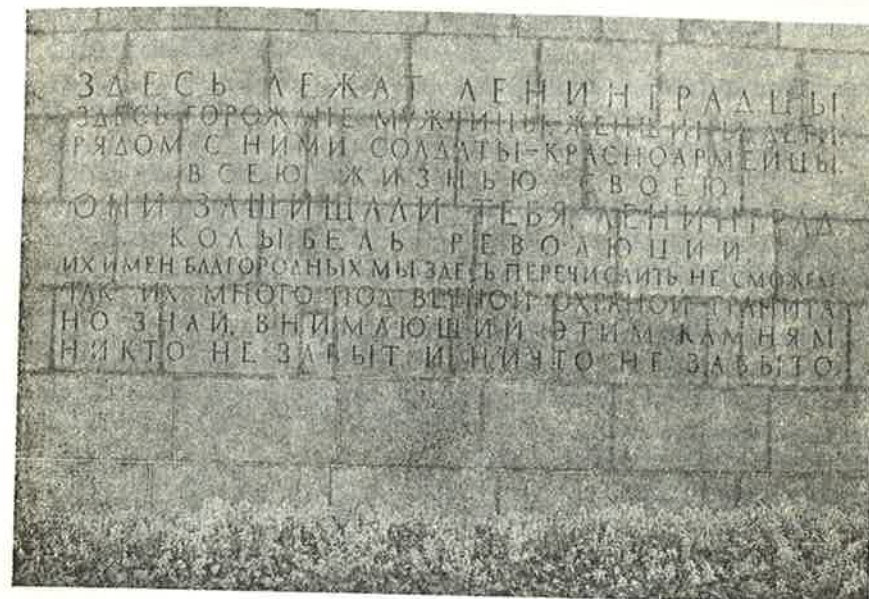 ЗДЕСЬ ЛЕЖАТ ЛЕНИНГРАДЦЫ
ЗДЕСЬ ГОРОЖАНЕ МУЖЧИНЫ ЖЕНЩИНЫ ДЕТИ.
РЯДОМ С НИМИ СОЛДАТЫ-КРАСНОАРМЕЙЦЫ.
ВСЕЮ ЖИЗНЬЮ СВОЕЮ
ОНИ ЗАЩИЩАЛИ ТЕБЯ, ЛЕНИНГРАД,
КОЛЫБЕЛЬ РЕВОЛЮЦИИ.
ИХ ИМЕН БЛАГОРОДНЫХ МЫ ЗДЕСЬ ПЕРЕЧИСЛИТЬ НЕ СМОЖЕМ
ТАК ИХ МНОГО ПОД ВЕЧНОЙ ОХРАНОЙ ГРАНИТА
НО ЗНАЙ, ВНИМАЮЩИЙ ЭТИМ КАМНЯМ
НИКТО НЕ ЗАБЫТ И НИЧТО НЕ ЗАБЫТО.